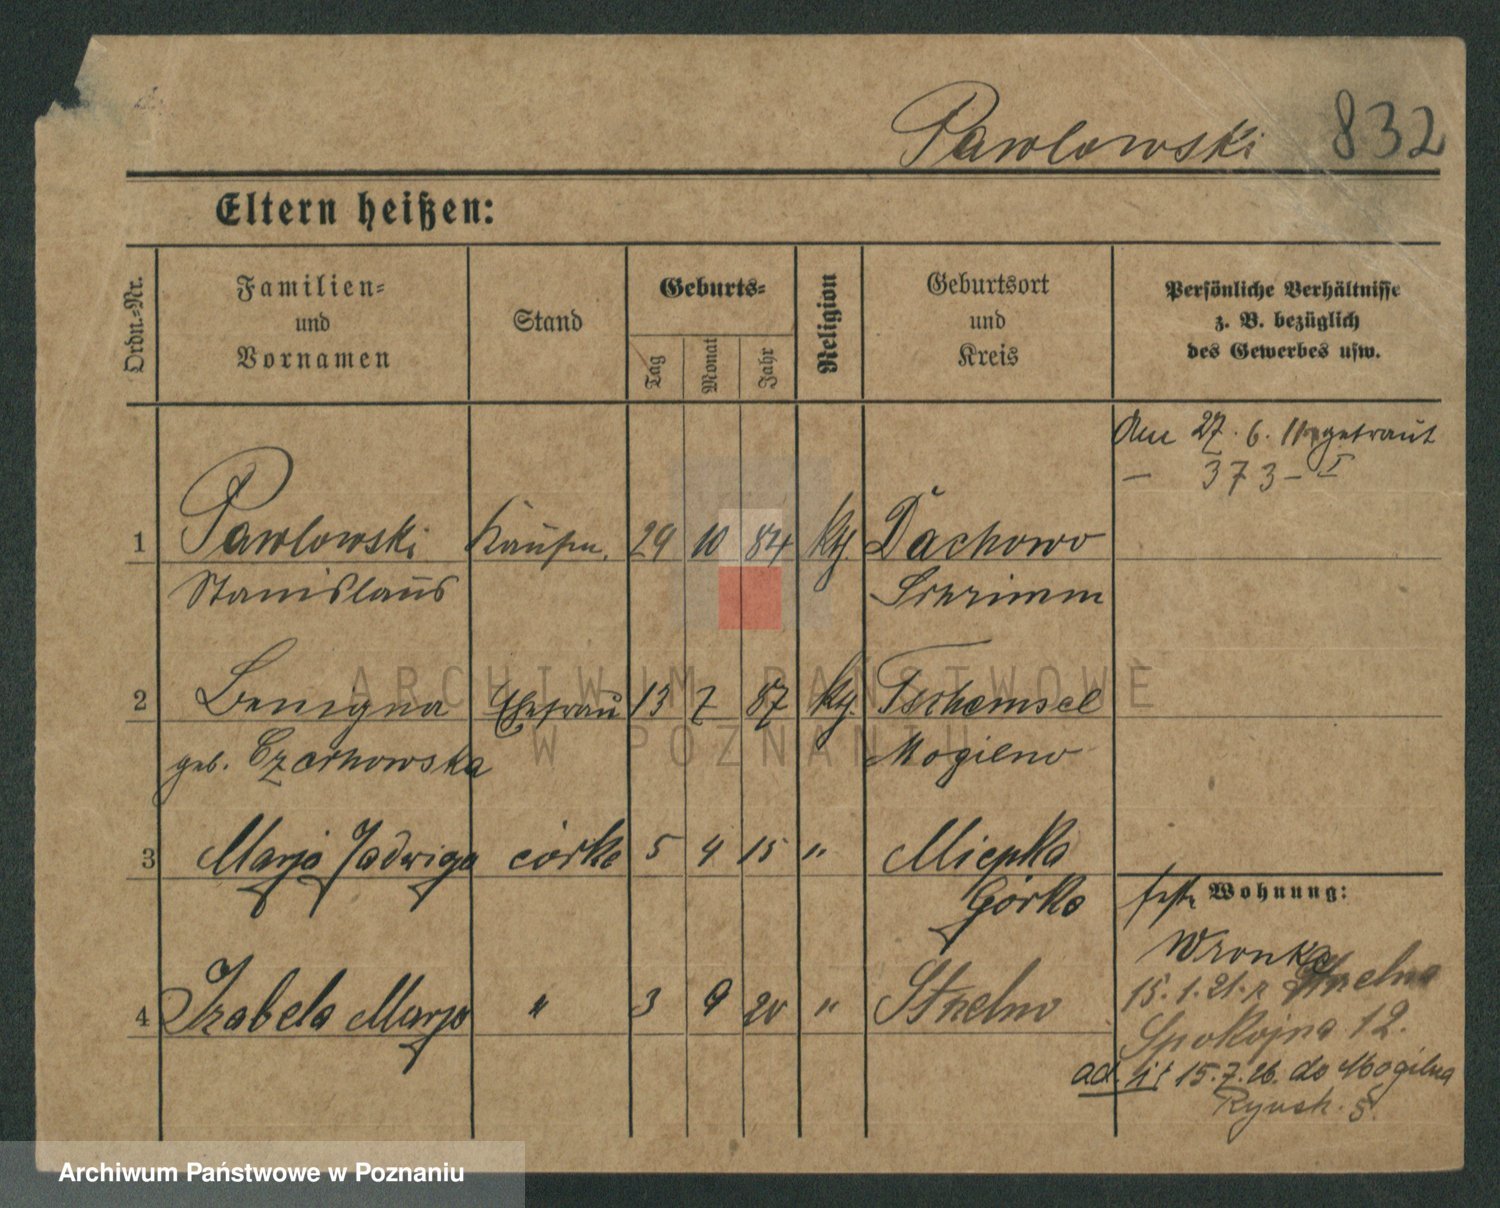 Pawlowski 832
Eltern heißen:
Ordn.-Nr.
Familien-
und
Vornamen
Stand
Geburts-
Tag
Monat
Jahr
Religion
Geburtsort
und
Kreis
Persönliche Verhältnisse
z. B. bezüglich
des Gewerbes usw.
Am 27. 6. 11 getraut
— 373 - I
1 Pawlowski Kaufm. 29 10 84 Kth. Dachowo
Stanislaus Schrimm
2 Benigna Ehefrau 13 7 87 Kth.
geb. Czarnowska Mogilno
3 Marja Jadwiga córka 5 4 15 " Miejska
Górka
Wohnung:
Wronke
4 Izabela Marja " 3 9 20 " Strelno
15. 1. 21. Strelno
Spokojna 12.
15. 7. 26. do Mogilna
Rynek 8.
ARCHIWUM PAŃSTWOWE
W POZNANIU
Archiwum Państwowe w Poznaniu